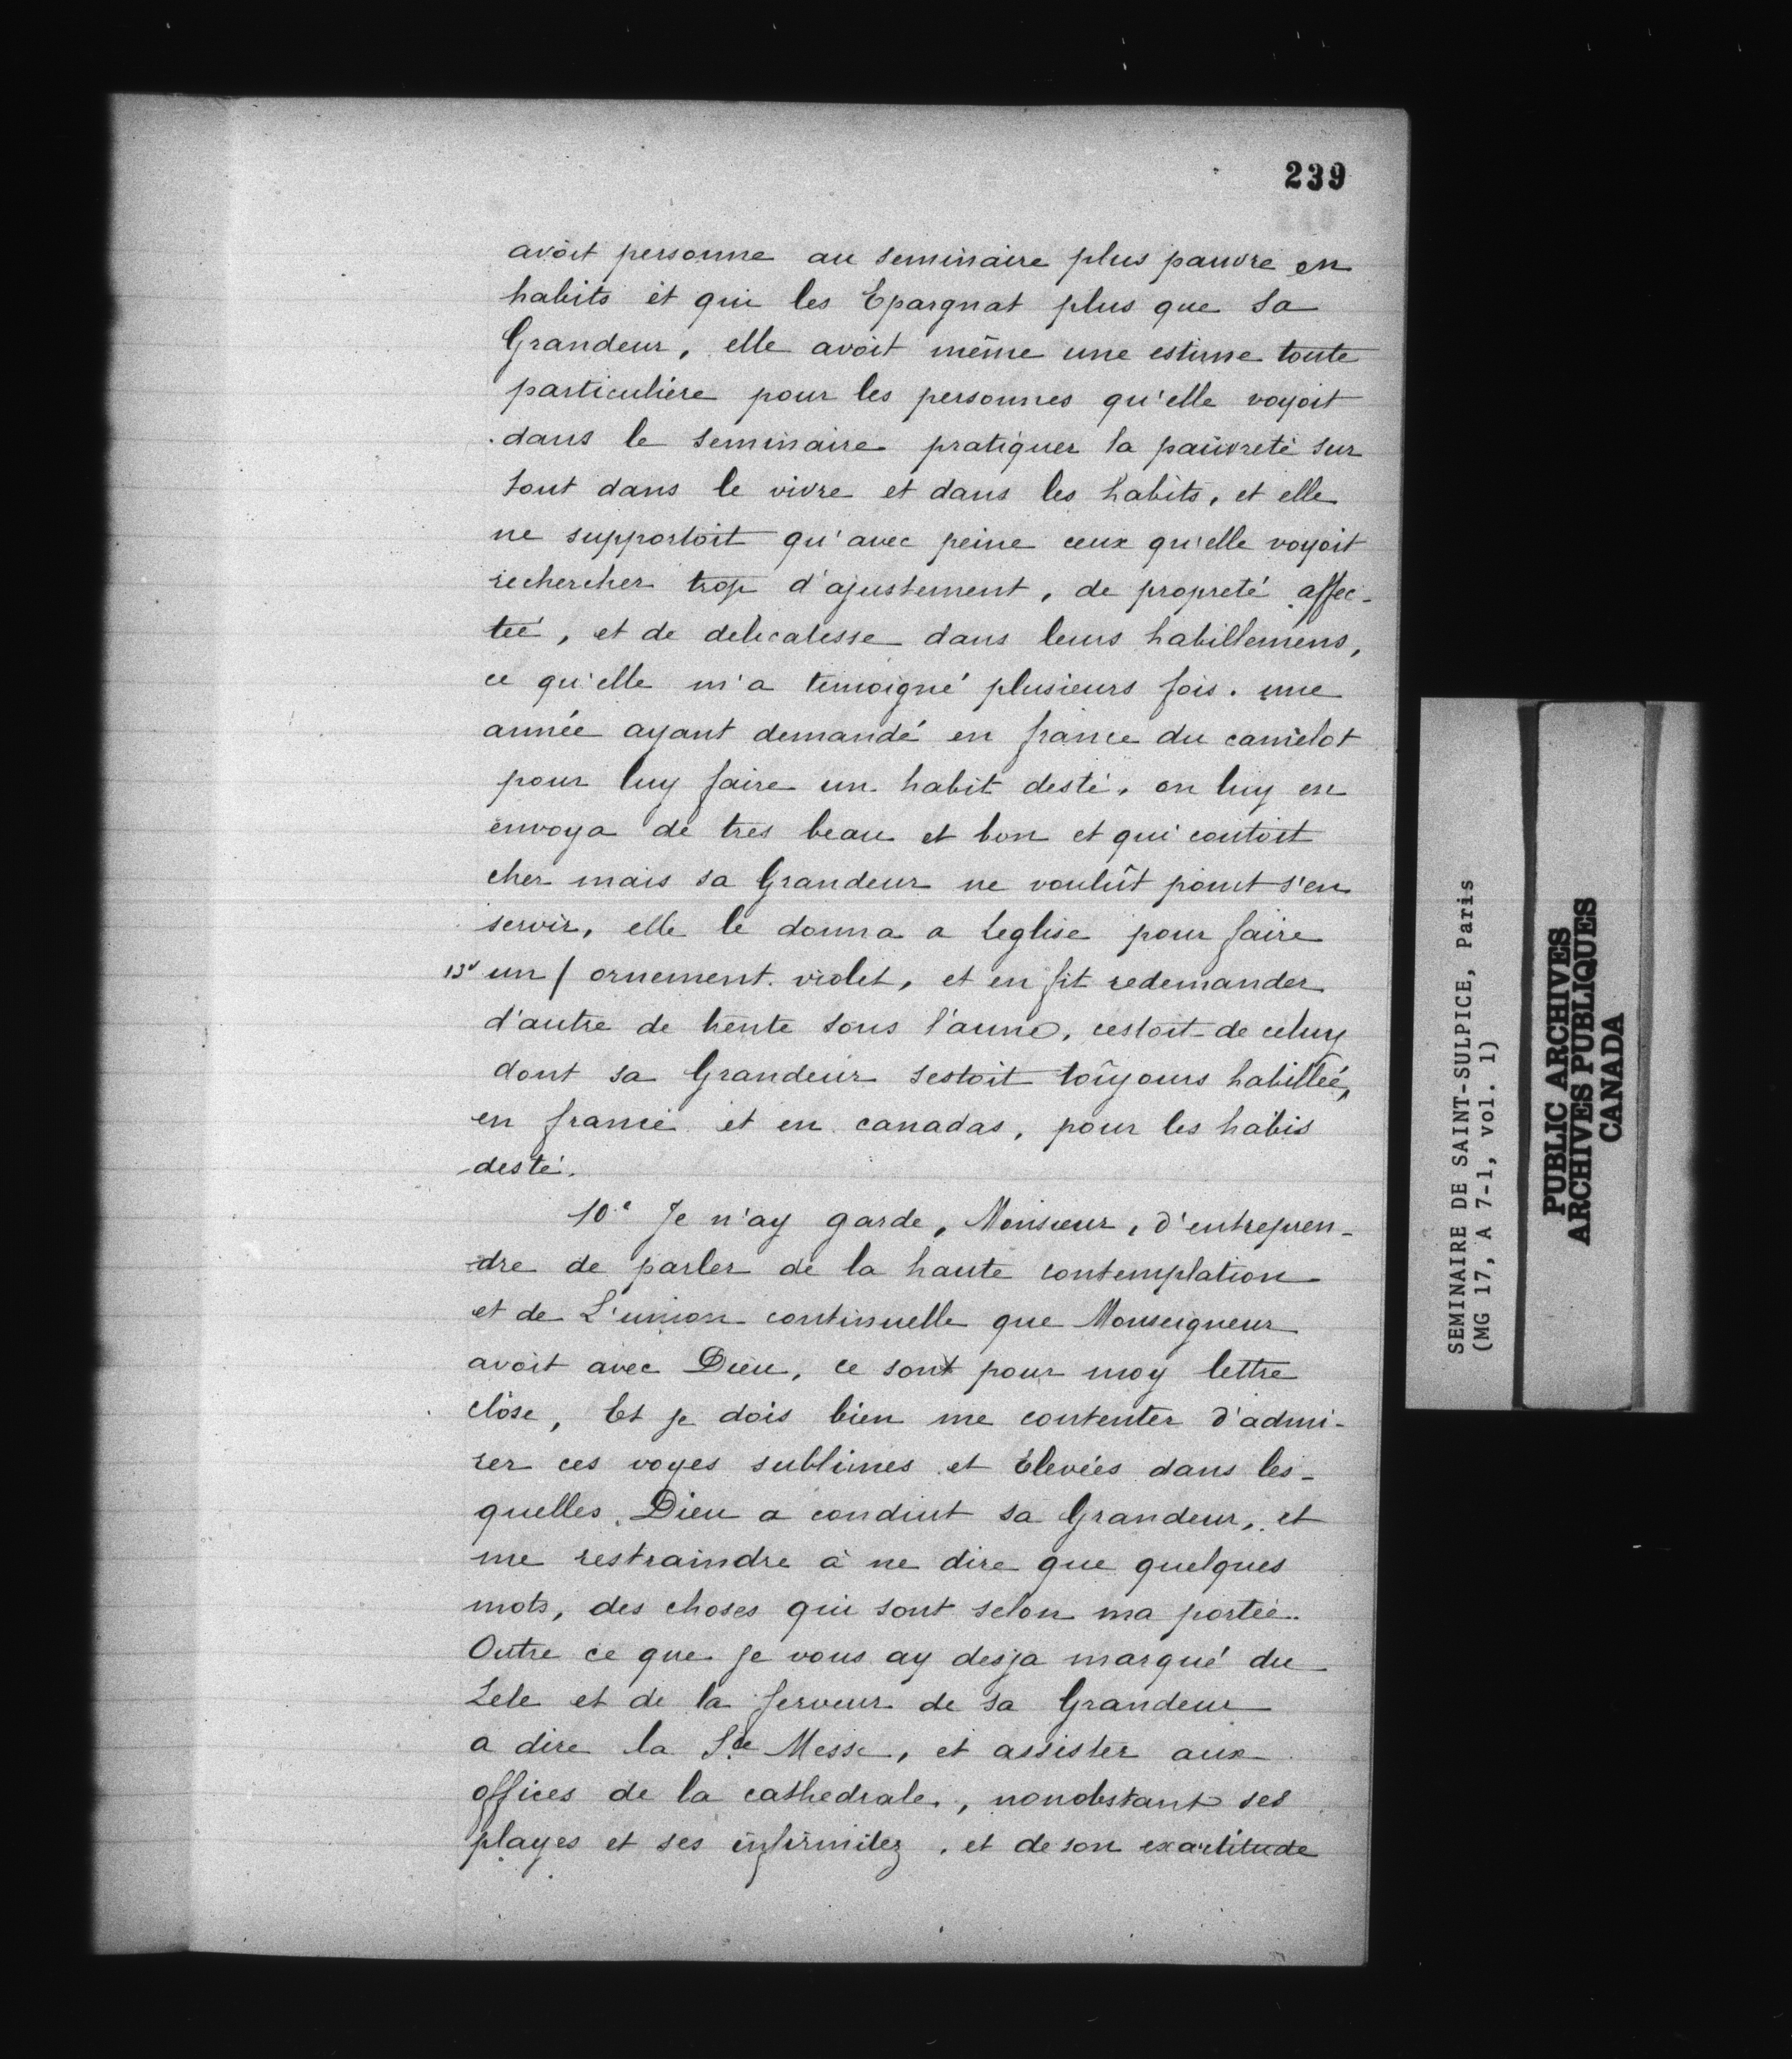 239
avoit personne au seminaire plus pauvre en
habits et qui les Epargnat plus que sa
Grandeur, elle avoit même une estime toute
particuliére pour les personnes qu'elle voyoit
dans le seminaire pratiquer la paüvreté sur
tout dans le vivre et dans les habits, et elle
ne supportoit qu'avec peine ceux qu'elle voyoit
rechercher trop d'ajustement, de propreté affec-
teé, et de delicatesse dans leurs habillemens,
ce qu'elle m'a temoigné plusieurs fois. une
année ayant demandé en france du camelot
pour luy faire un habit desté, on luy en
envoya de tres beau et bon et qui coutoit
cher mais sa Grandeur ne voulût point s'en
servir, elle le donna a leglise pour faire
13v un / ornement violet, et en fit redemander
d'autre de trente sous l'aune, cestoit de celuy
dont sa Grandeur sestoit toûyours habilleé,
en france et en canadas, pour les habis
desté.
10e Je n'ay garde, Monsieur, d'entrepren-
dre de parler de la haute contemplation
et de L'union continuelle que Monseigneur
avoit avec Dieu, ce sont pour moy lettre
close, Et je dois bien me contenter d'admi-
rer ces voyes sublimes et Elevées dans les-
quelles Dieu a conduit sa Grandeur, et
me restraindre à ne dire que quelques
mots, des choses qui sont selon ma porteé.
Outre ce que je vous ay desja marqué du
Zele et de la ferveur de sa Grandeur
a dire la Ste Messe, et assister aux
offices de la cathedrale, nonobstant ses
playes et ses infirmitez, et de son exactitude
SEMINAIRE DE SAINT-SULPICE, Paris
(MG 17, A 7-1, vol. 1)
PUBLIC ARCHIVES
ARCHIVES PUBLIQUES
CANADA